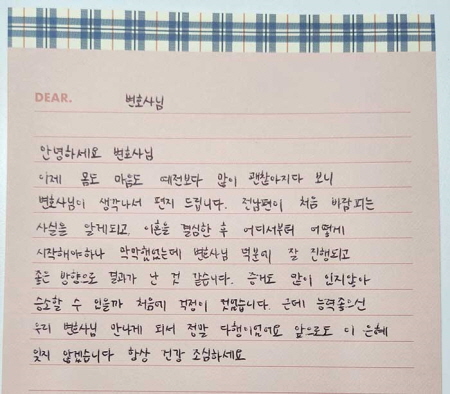 DEAR. 변호사님
안녕하세요 변호사님
이제 몸도 마음도 예전보다 많이 괜찮아지다 보니
변호사님이 생각나서 편지 드립니다. 전남편이 처음 바람피는
사실을 알게되고, 이혼을 결심한 후 어디서부터 어떻게
시작해야하나 막막했었는데 변호사님 덕분에 잘 진행되고
좋은 방향으로 결과가 난 것 같습니다. 증거도 많이 있지않아
승소할 수 있을까 처음에 걱정이 컸었습니다. 근데 능력좋으신
우리 변호사님 만나게 되서 정말 다행이었어요 앞으로도 이 은혜
잊지 않겠습니다 항상 건강 조심하세요